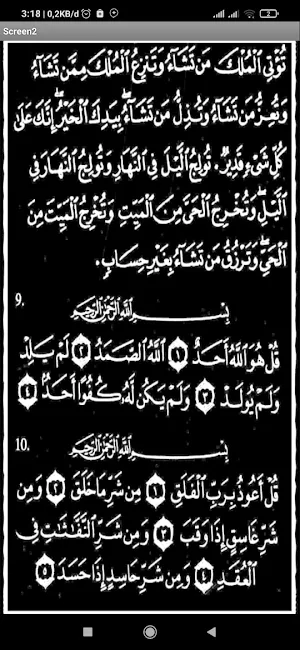 3:18 | 0,2KB/d
2
Screen2
تُؤْتِي الْمُلْكَ مَنْ تَشَآءُ وَتَنْزِعُ الْمُلْكَ مِمَّنْ تَشَآءُ
وَتُعِزُّ مَنْ تَشَآءُ وَتُذِلُّ مَنْ تَشَآءُ بِيَدِكَ الْخَيْرُ إِنَّكَ عَلَىٰ
كُلِّ شَيْءٍ قَدِيْرٌ. تُوْلِجُ الَّيْلَ فِي النَّهَارِ وَتُوْلِجُ النَّهَارَ فِي
الَّيْلِ وَتُخْرِجُ الْحَيَّ مِنَ الْمَيِّتِ وَتُخْرِجُ الْمَيِّتَ مِنَ
الْحَيِّ وَتَرْزُقُ مَنْ تَشَآءُ بِغَيْرِ حِسَابٍ.
9. بِسْمِ اللَّهِ الرَّحْمَٰنِ الرَّحِيمِ
قُلْ هُوَ اللَّهُ أَحَدٌ ١ اللَّهُ الصَّمَدُ ٢ لَمْ يَلِدْ
وَلَمْ يُولَدْ ٣ وَلَمْ يَكُنْ لَهُ كُفُوًا أَحَدٌ ٤
10. بِسْمِ اللَّهِ الرَّحْمَٰنِ الرَّحِيمِ
قُلْ أَعُوذُ بِرَبِّ الْفَلَقِ ١ مِنْ شَرِّ مَا خَلَقَ ٢ وَمِنْ
شَرِّ غَاسِقٍ إِذَا وَقَبَ ٣ وَمِنْ شَرِّ النَّفَّٰثَٰتِ فِي
الْعُقَدِ ٤ وَمِنْ شَرِّ حَاسِدٍ إِذَا حَسَدَ ٥